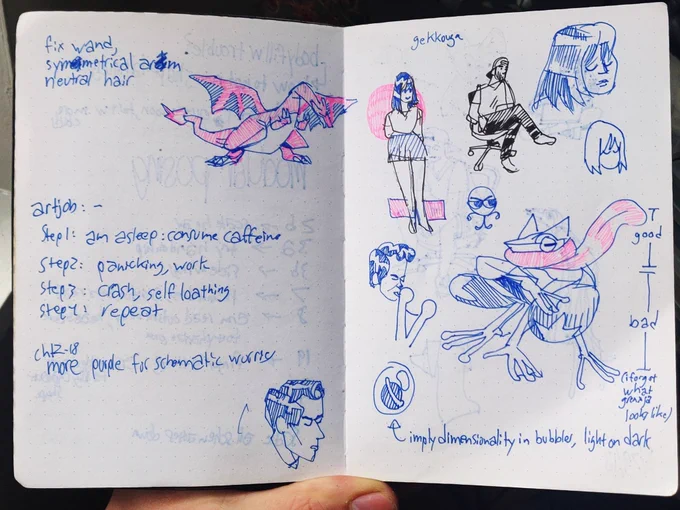 fix wand,
symmetrical arm
neutral hair
artjob: -
Step1: am asleep: consume caffeine
Step2: panicking, work
Step3: crash, self loathing
Step4: repeat
more purple for schematic worries
gekkouga
T
good
bad
(i forgot
what
greninja
looks like)
imply dimensionality in bubbles, light on dark